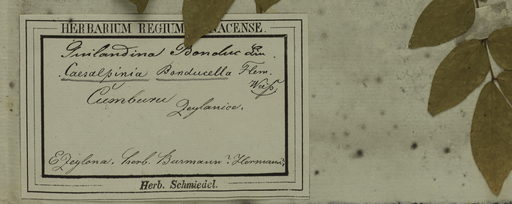 HERBARIUM REGIUM NACENSE.
Guilandina Bonduc Lin.
Caesalpinia Bonducella Flem.
Cumburu
Zeylanice.
E Zeylona. herb. Burmann? Hermann?
Herb. Schmiedel.